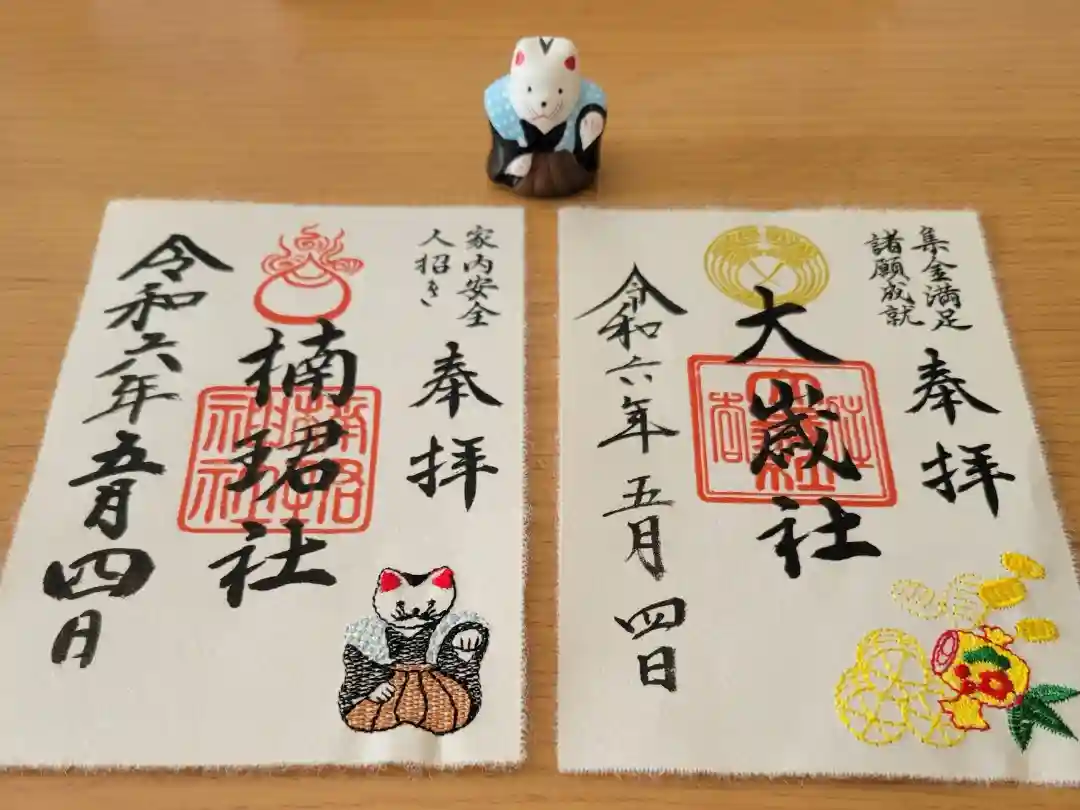 家内安全
人招き
奉拝
楠珺社
令和六年五月四月
集金満足
諸願成就
奉拝
大歳社
令和六年五月四日